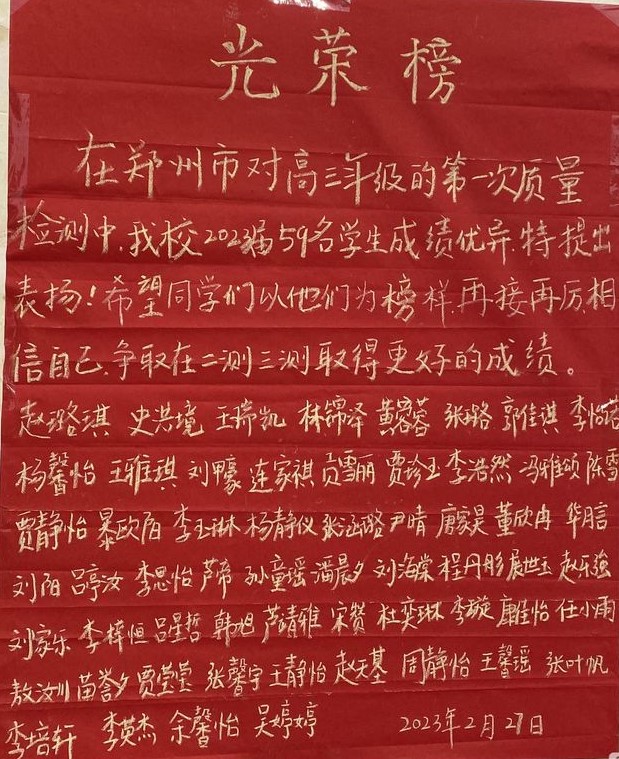 光荣榜
在郑州市对高三年级的第一次质量
检测中,我校2023届59名学生成绩优异,特提出
表扬!希望同学们以他们为榜样,再接再厉,相
信自己,争取在二测三测取得更好的成绩。
赵璐琪 史洪境 王瑞凯 林锦泽 黄容蓉 张璐 郭佳琪 李怡蓉
杨馨怡 王雅琪 刘甲豪 连家祺 贠雪丽 贾珍玉 李浩然 冯雅颂 陈雪
贾静怡 暴欧阳 李玉琳 杨静仪 张涵璐 尹晴 唐家昊 董欣冉 华月言
刘阳 吕亭汝 李思怡 芦帝 孙童瑶 潘晨夕 刘海棠 程丹彤 展世玉 赵乐强
刘家乐 李梓恒 吕星哲 韩旭 芦靖雅 宋赞 杜奕琳 李璇 康佳怡 任小雨
敖汝川 苗誉夕 贾莹莹 张馨宇 王静怡 赵天基 周静怡 王馨瑶 张叶帆
李培轩 李英杰 余馨怡 吴婷婷 2023年2月27日